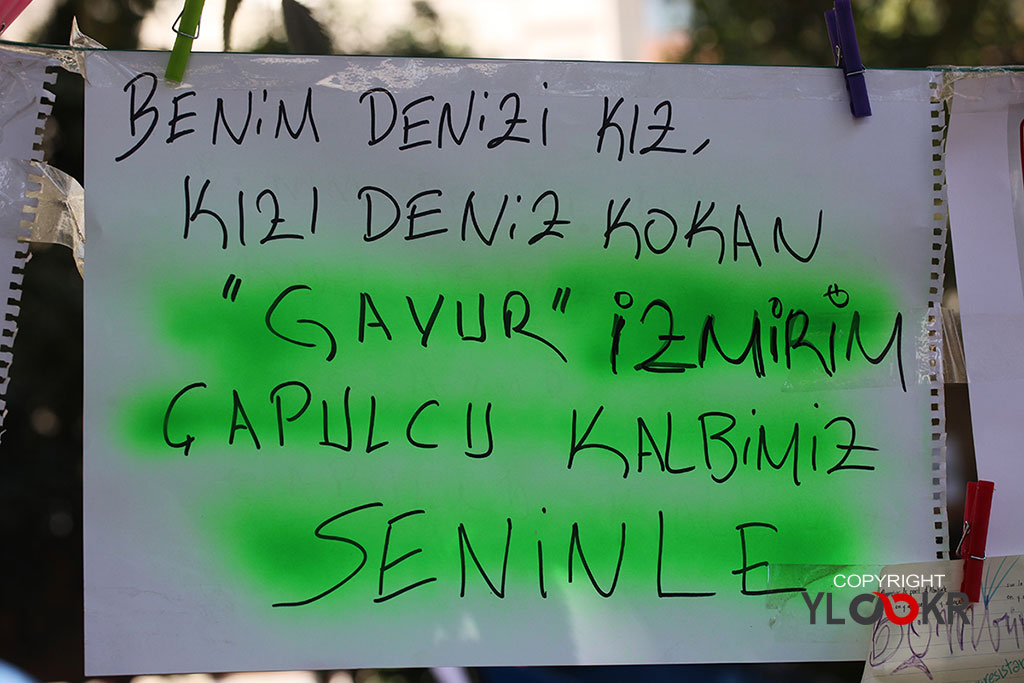 BENİM DENİZİ KIZ,
KIZI DENİZ KOKAN
"GAVUR" İZMİRİM
ÇAPULCU KALBİMİZ
SENİNLE
COPYRIGHT
YLOOKR